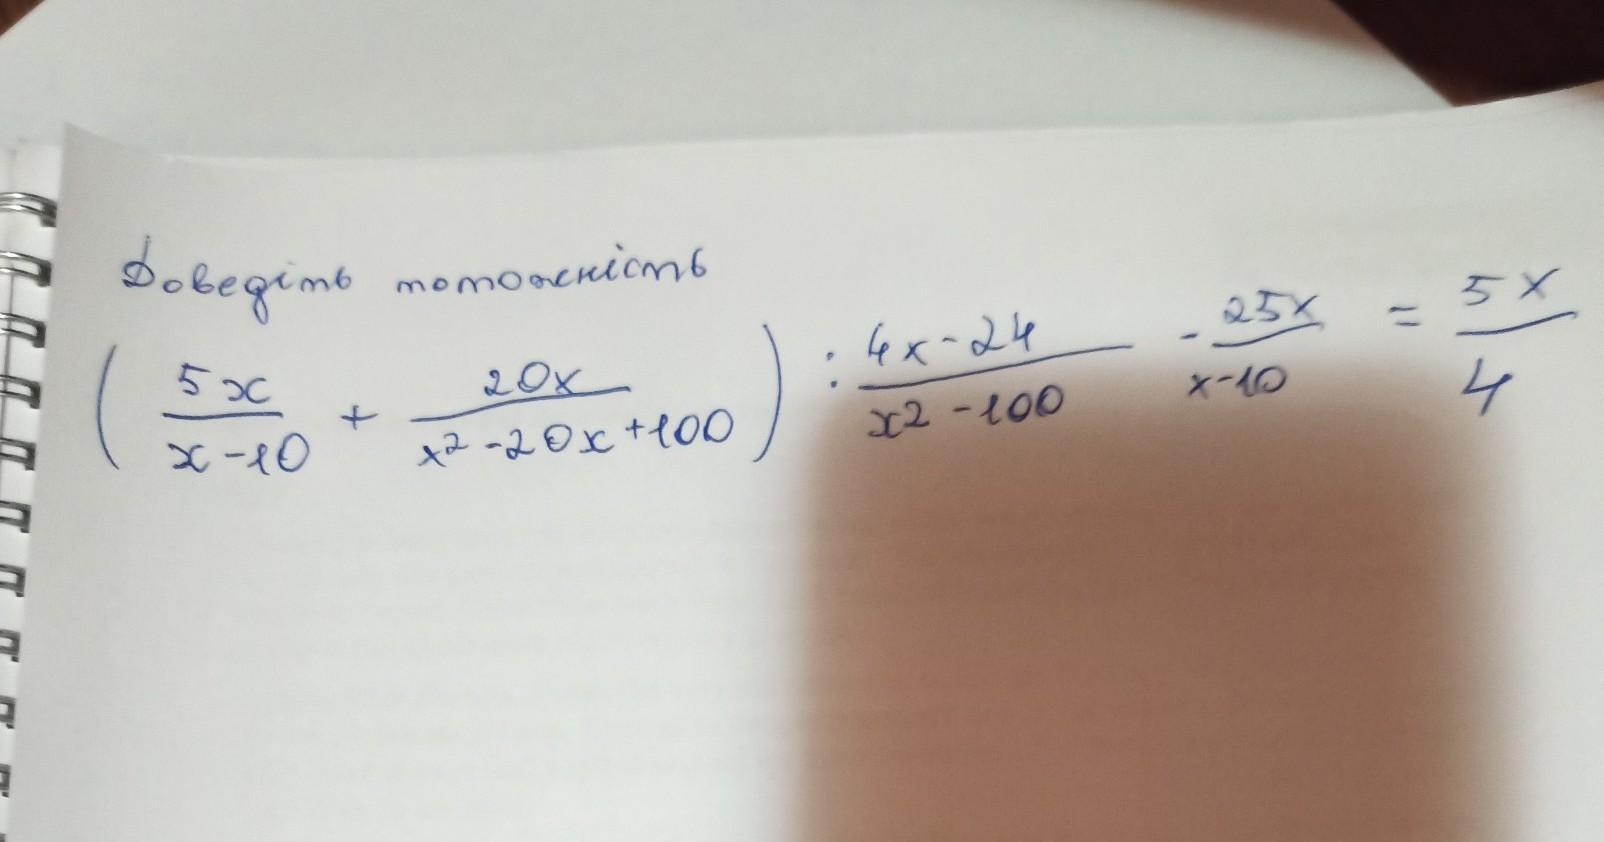 Доведіть тотожність
( 5x/(x-10) + 20x/(x²-20x+100) ) : (4x-24)/(x2-100) - 25x/(x-10) = 5x/4